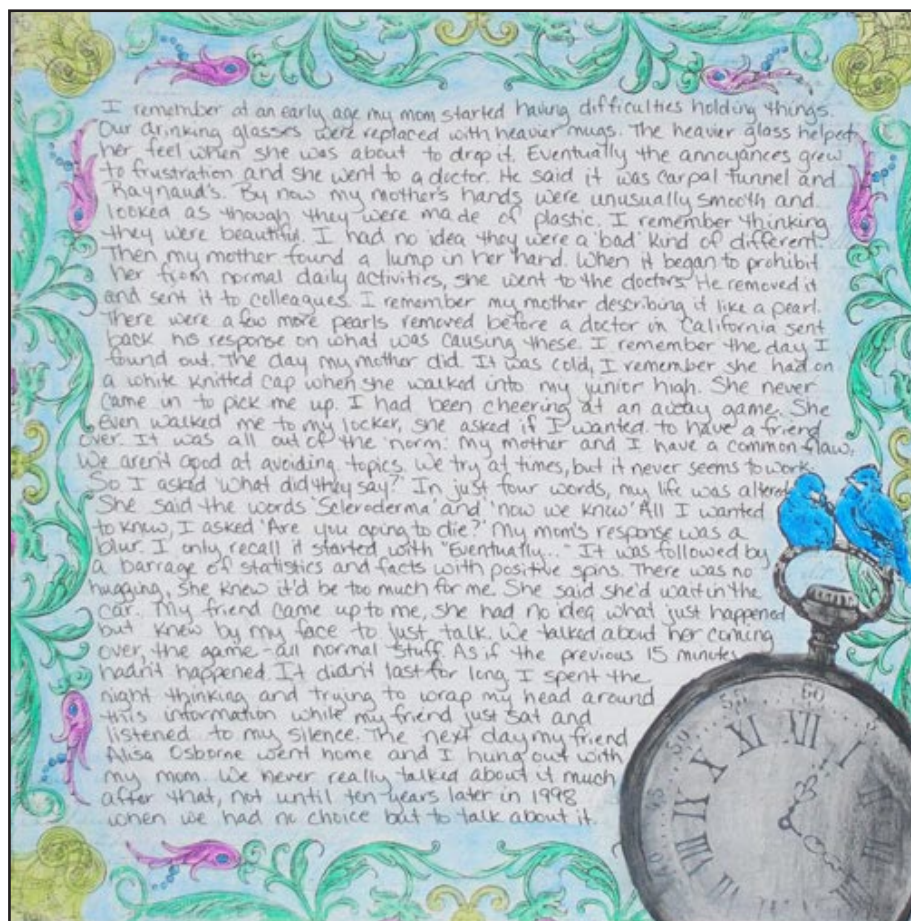 I remember at an early age my mom started having difficulties holding things.
Our drinking glasses were replaced with heavier mugs. The heavier glass helped
her feel when she was about to drop it. Eventually the annoyances grew
to frustration and she went to a doctor. He said it was carpal tunnel and
Raynaud's. By now my mother's hands were unusually smooth and
looked as though they were made of plastic. I remember thinking
they were beautiful. I had no idea they were a 'bad' kind of different.
Then my mother found a lump in her hand. When it began to prohibit
her from normal daily activities, she went to the doctors. He removed it
and sent it to colleagues. I remember my mother describing it like a pearl.
There were a few more pearls removed before a doctor in California sent
back his response on what was causing these. I remember the day I
found out. The day my mother did. It was cold, I remember she had on
a white knitted cap when she walked into my junior high. She never
came in to pick me up. I had been cheering at an away game. She
even walked me to my locker, she asked if I wanted to have a friend
over. It was all out of the 'norm'. My mother and I have a common flaw.
We aren't good at avoiding topics. We try at times, but it never seems to work.
So I asked 'What did they say?' In just four words, my life was altered
She said the words 'Scleroderma' and 'now we know' All I wanted
to know, I asked 'Are you going to die?' My mom's response was a
blur. I only recall it started with "Eventually..." It was followed by
a barrage of statistics and facts with positive spins. There was no
hugging, she knew it'd be too much for me. She said she'd wait in the
car. My friend came up to me, she had no idea what just happened
but knew by my face to just talk. We talked about her coming
over, the game - all normal stuff. As if the previous 15 minutes
hadn't happened. It didn't last for long. I spent the
night thinking and trying to wrap my head around
this information while my friend just sat and
listened to my silence. The next day my friend
Alisa Osborne went home and I hung out with
my mom. We never really talked about it much
after that, not until ten years later in 1998
when we had no choice but to talk about it.
50 55 60
XI XII I
X
IX
VIII